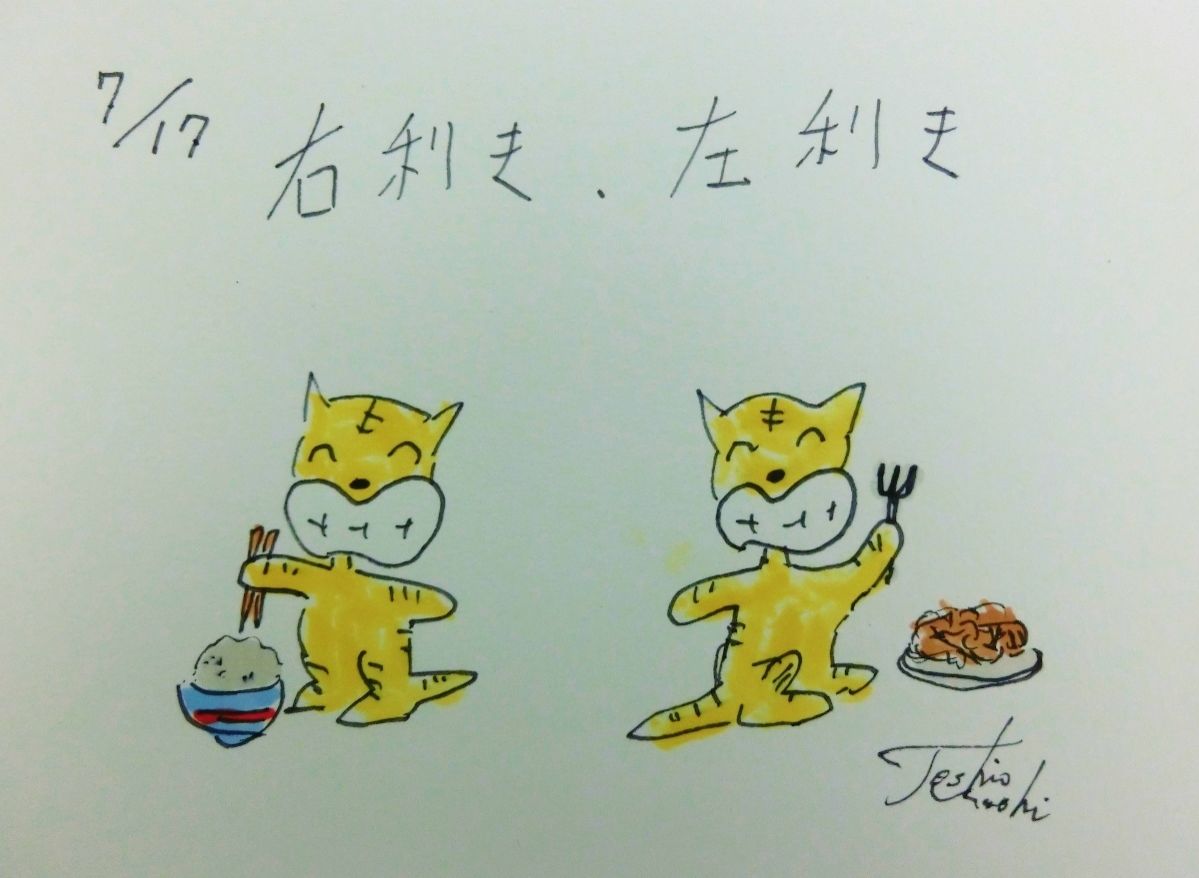 7/17 右利き、左利き
Toshio